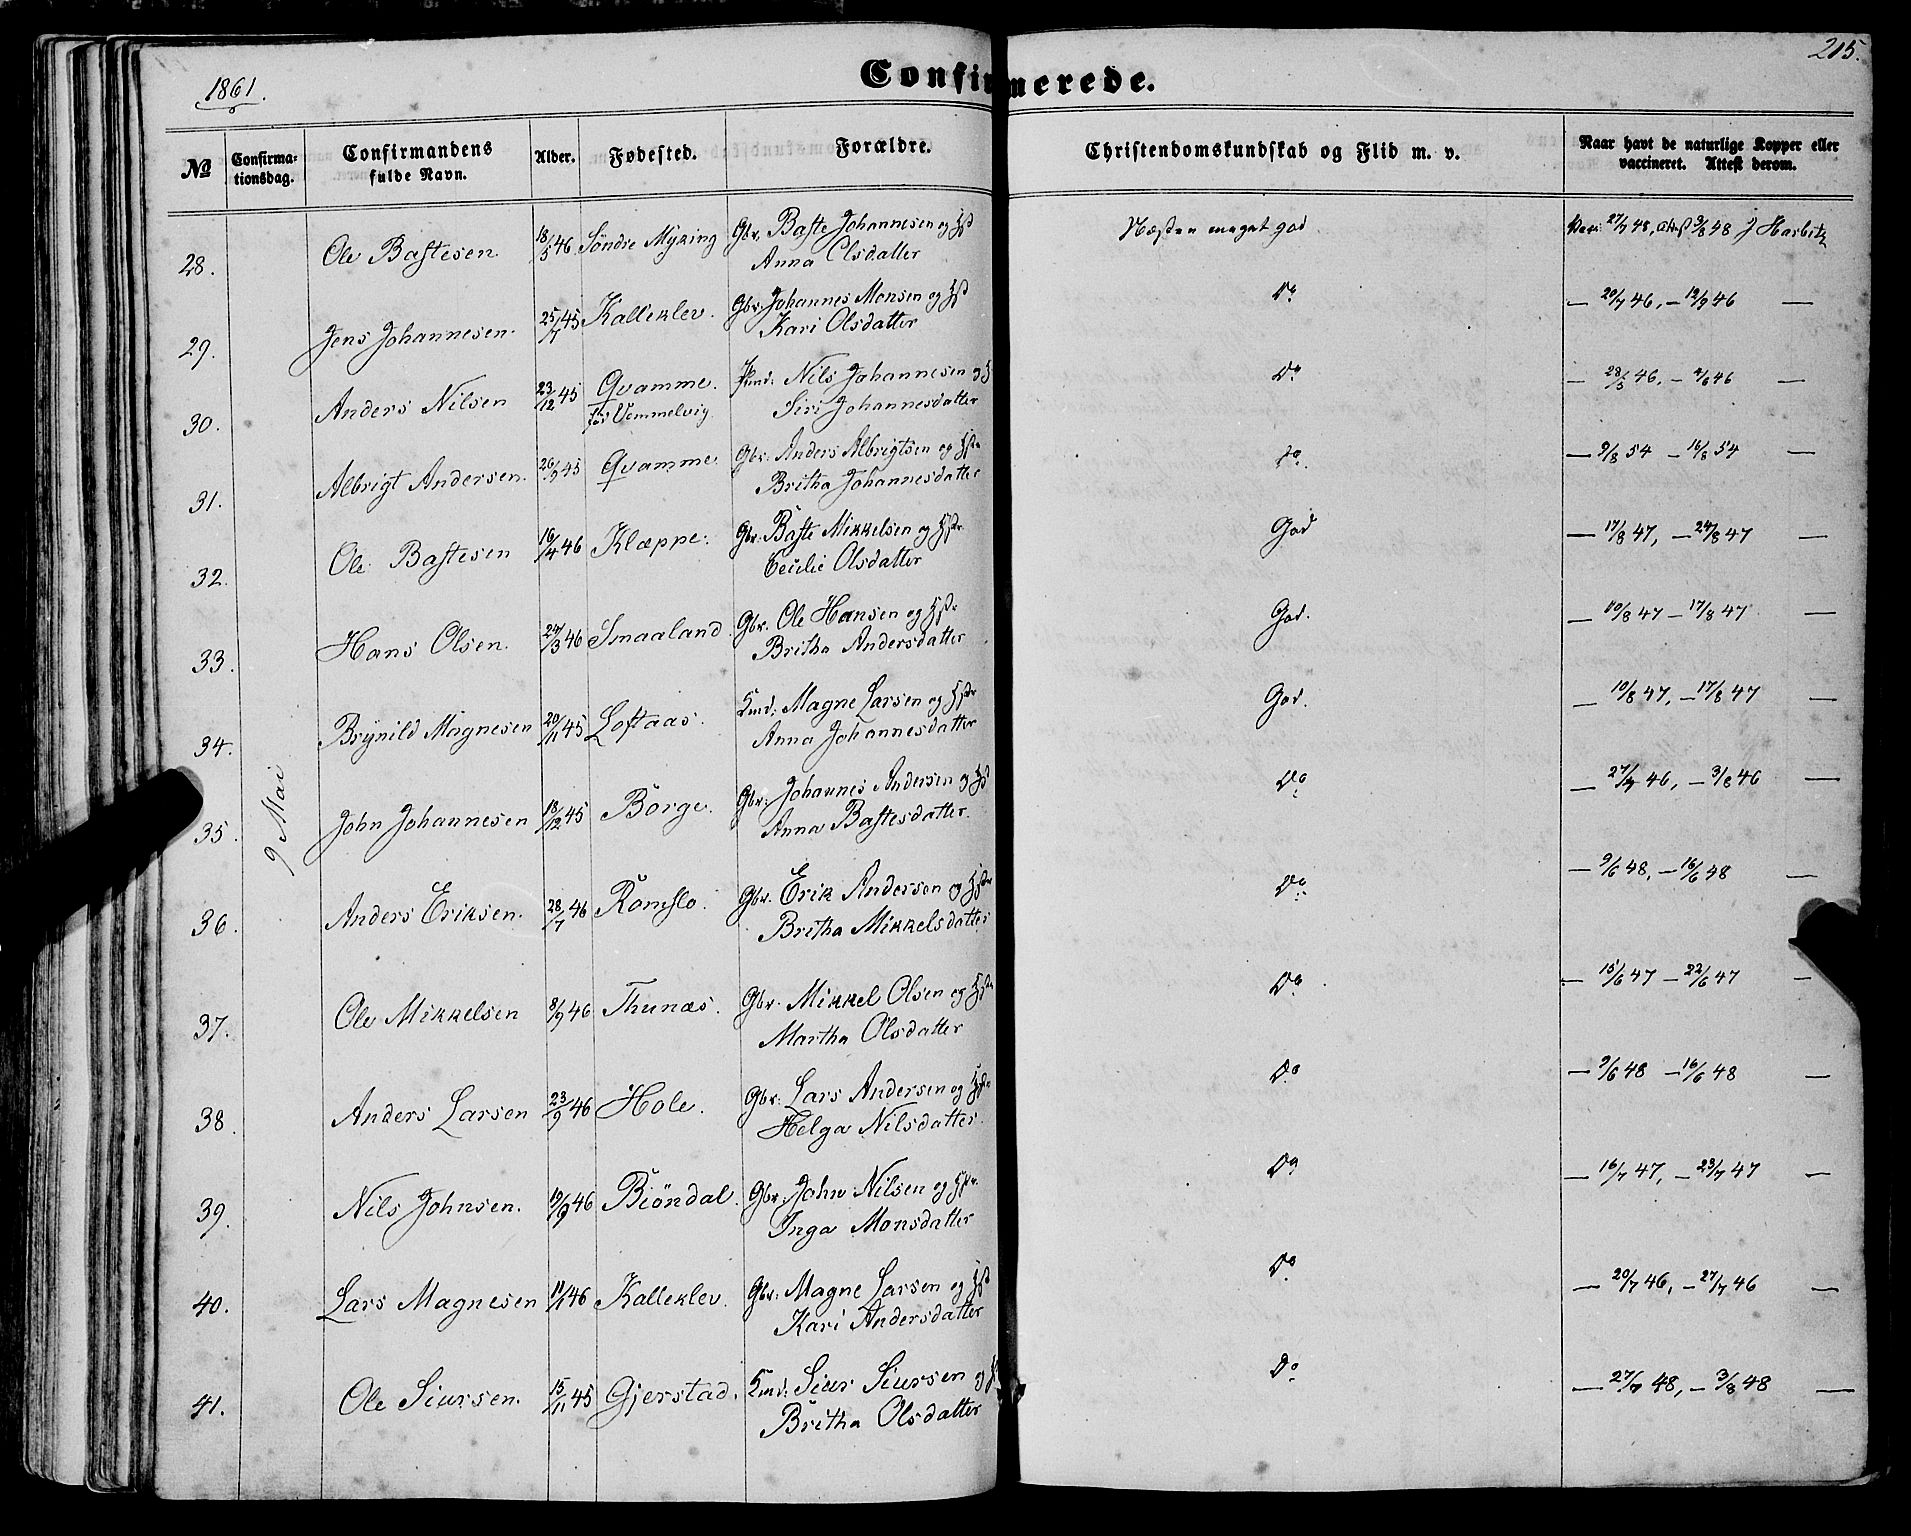 1861.
Confirmerede.
215.
No
Confirma-
tionsdag.
Confirmandens
fulde Navn.
Alder.
Fødested.
Forældre.
Christendomskundskab og Flid m. v.
Naar havt de naturlige Kopper eller
vaccineret. Attest derom.
9 Mai
28. Ole Bastesen 18/5 46 Söndre Myking Gbr. Baste Johannesen og Hst Næsten meget god 27/7 48, Att 3/8 48 J Harbitz
Anna Olsdatter
29. Jens Johannesen 25/7 45 Kalleklev. Gbr. Johannes Monsen og Hst Do — 20/7 46, — 12/9 46 —
Kari Olsdatter
30. Anders Nilsen 23/12 45 Qvamme. Nils Johannesen og H Do — 28/5 46, — 4/6 46 —
før Vemmelvig Siri Johannesdatter
31. Albrigt Andersen 26/9 45 Qvamme Gbr: Anders Albrigtsen og Hstr Do. — 9/8 54 — 16/8 54 —
Britha Johannesdatter
32. Ole Bastesen 16/4 46 Klæppe. Gbr: Baste Mikkelsen og Hstr. God — 17/8 47, — 24/8 47 —
Cecilie Olsdatter
33. Hans Olsen. 24/3 46 Smaaland. Gbr. Ole Hansen og Hstr God. — 10/8 47 — 17/8 47 —
Britha Andersdatter
34. Brynild Magnesen 20/11 45 Loftaas. Hmd: Magne Larsen og Hstr God. — 10/8 47, — 17/8 47 —
Anna Johannesdatter
35. John Johannesen 18/12 45 Borge. Gbr: Johannes Andersen og Hst Do — 27/7 46, — 3/8 46 —
Anna Bastesdatter.
36. Anders Eriksen. 28/7 46 Romslo. Gbr. Erik Andersen og Hstr Do — 9/6 48, — 16/6 48 —
Britha Mikkelsdatter
37. Ole Mikkelsen 8/9 46 Thunæs. Gbr. Mikkel Olsen og Hstr Do — 15/6 47 — 22/6 47 —
Martha Olsdatter
38. Anders Larsen 23/9 46 Hole. Gbr: Lars Andersen og Hstr Do — 9/6 48 — 16/6 48 —
Helga Nilsdatter.
39. Nils Johnsen. 19/9 46 Biöndal. Gbr. John Nilsen og Hstr. Do — 16/7 47, — 23/7 47 —
Inga Monsdatter
40. Lars Magnesen 11/1 46 Kalleklev. Gbr: Magne Larsen og Hst Do — 20/7 46, — 27/7 46 —
Kari Andersdatter
41. Ole Siursen. 15/11 45 Gjerstad. Hmd: Siur Siursen og H Do — 27/7 48, — 3/8 48 —
Britha Olsdatter